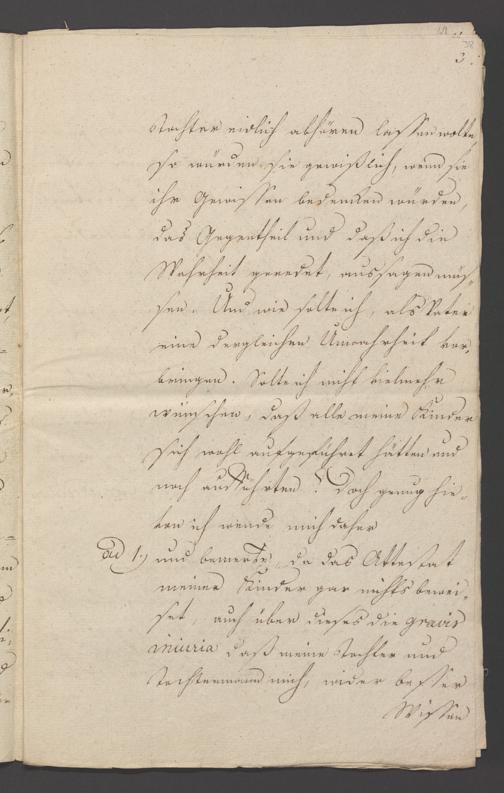 3.
Tochter eidlich abhören lassen wolte
so würden sie gewißlich, wenn sie
ihr Gewissen bedenken würden,
das Gegentheil und daß ich die
Wahrheit geredet, aussagen müs-
sen. Und wie solte ich, als Vater
eine dergleichen Unwahrheit vor-
bringen. Solte ich nicht vielmehr
wünschen, daß alle meine Kinder
sich wohl aufgeführet hätten und
noch aufführten? Doch genug hie-
von ich wende mich daher
ad 1.) und bemerke, da das Attestat
meiner Kinder gar nichts bewei-
set, auch über dieses die gravis
iniuria daß meine Tochter und
Tochtermann mich, wider besser
Wissen